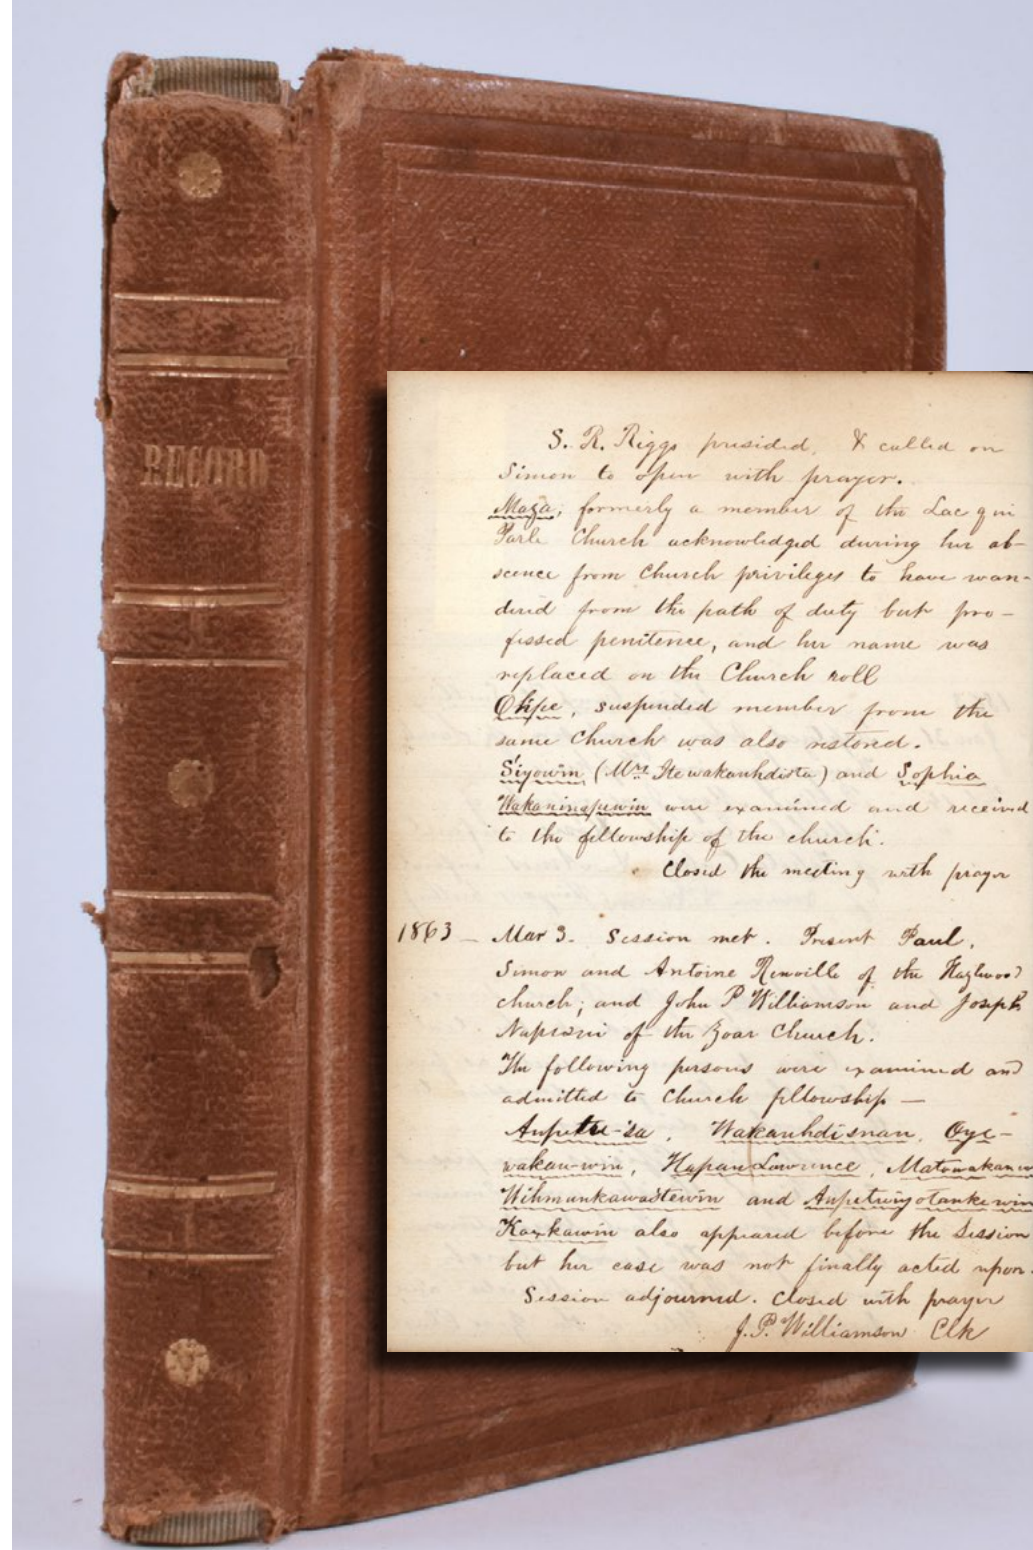 RECORD
S. R. Riggs presided, & called on
Simon to open with prayer.
Maza, formerly a member of the Lac qui
Parle Church acknowledged during her ab-
scence from Church privileges to have wan-
dered from the path of duty but pro-
fessed penitence, and her name was
replaced on the Church roll
Okipe, suspended member from the
same Church was also restored.
Siyowin (Mrs Itewakanhdiota) and Sophia
Wakaninapewin were examined and received
to the fellowship of the church.
Closed the meeting with prayer
1863 - Mar 3. Session met. Present Paul,
Simon and Antoine Renville of the Hazlwood
church; and John P Williamson and Joseph
Napesni of the Zoar Church.
The following persons were examined and
admitted to Church fellowship —
Anpetu-sa, Wakanhdisnan, Oye-
wakan-win, Hapan Lawrence, Matowakanw
Wihmunkawastewin and Anpetuiyotankewin
Kaxkawin also appeared before the Session
but her case was not finally acted upon.
Session adjourned. Closed with prayer
J. P. Williamson Clk